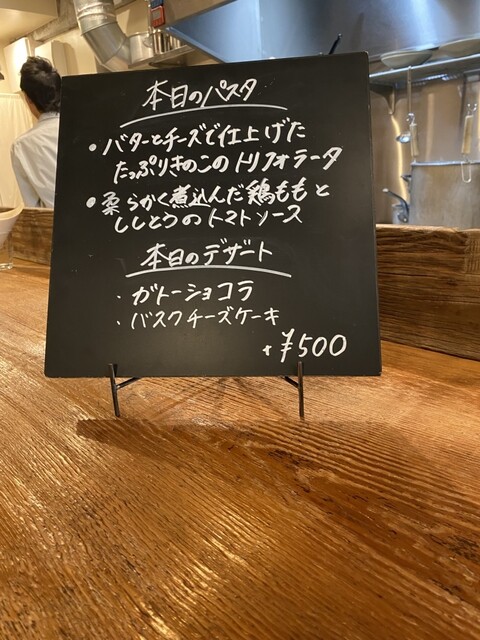 本日のパスタ
・バターとチーズで仕上げた
たっぷりきのこのトリフォラータ
・柔らかく煮込んだ鶏ももと
ししとうのトマトソース
本日のデザート
・ガトーショコラ
・バスクチーズケーキ
+¥500